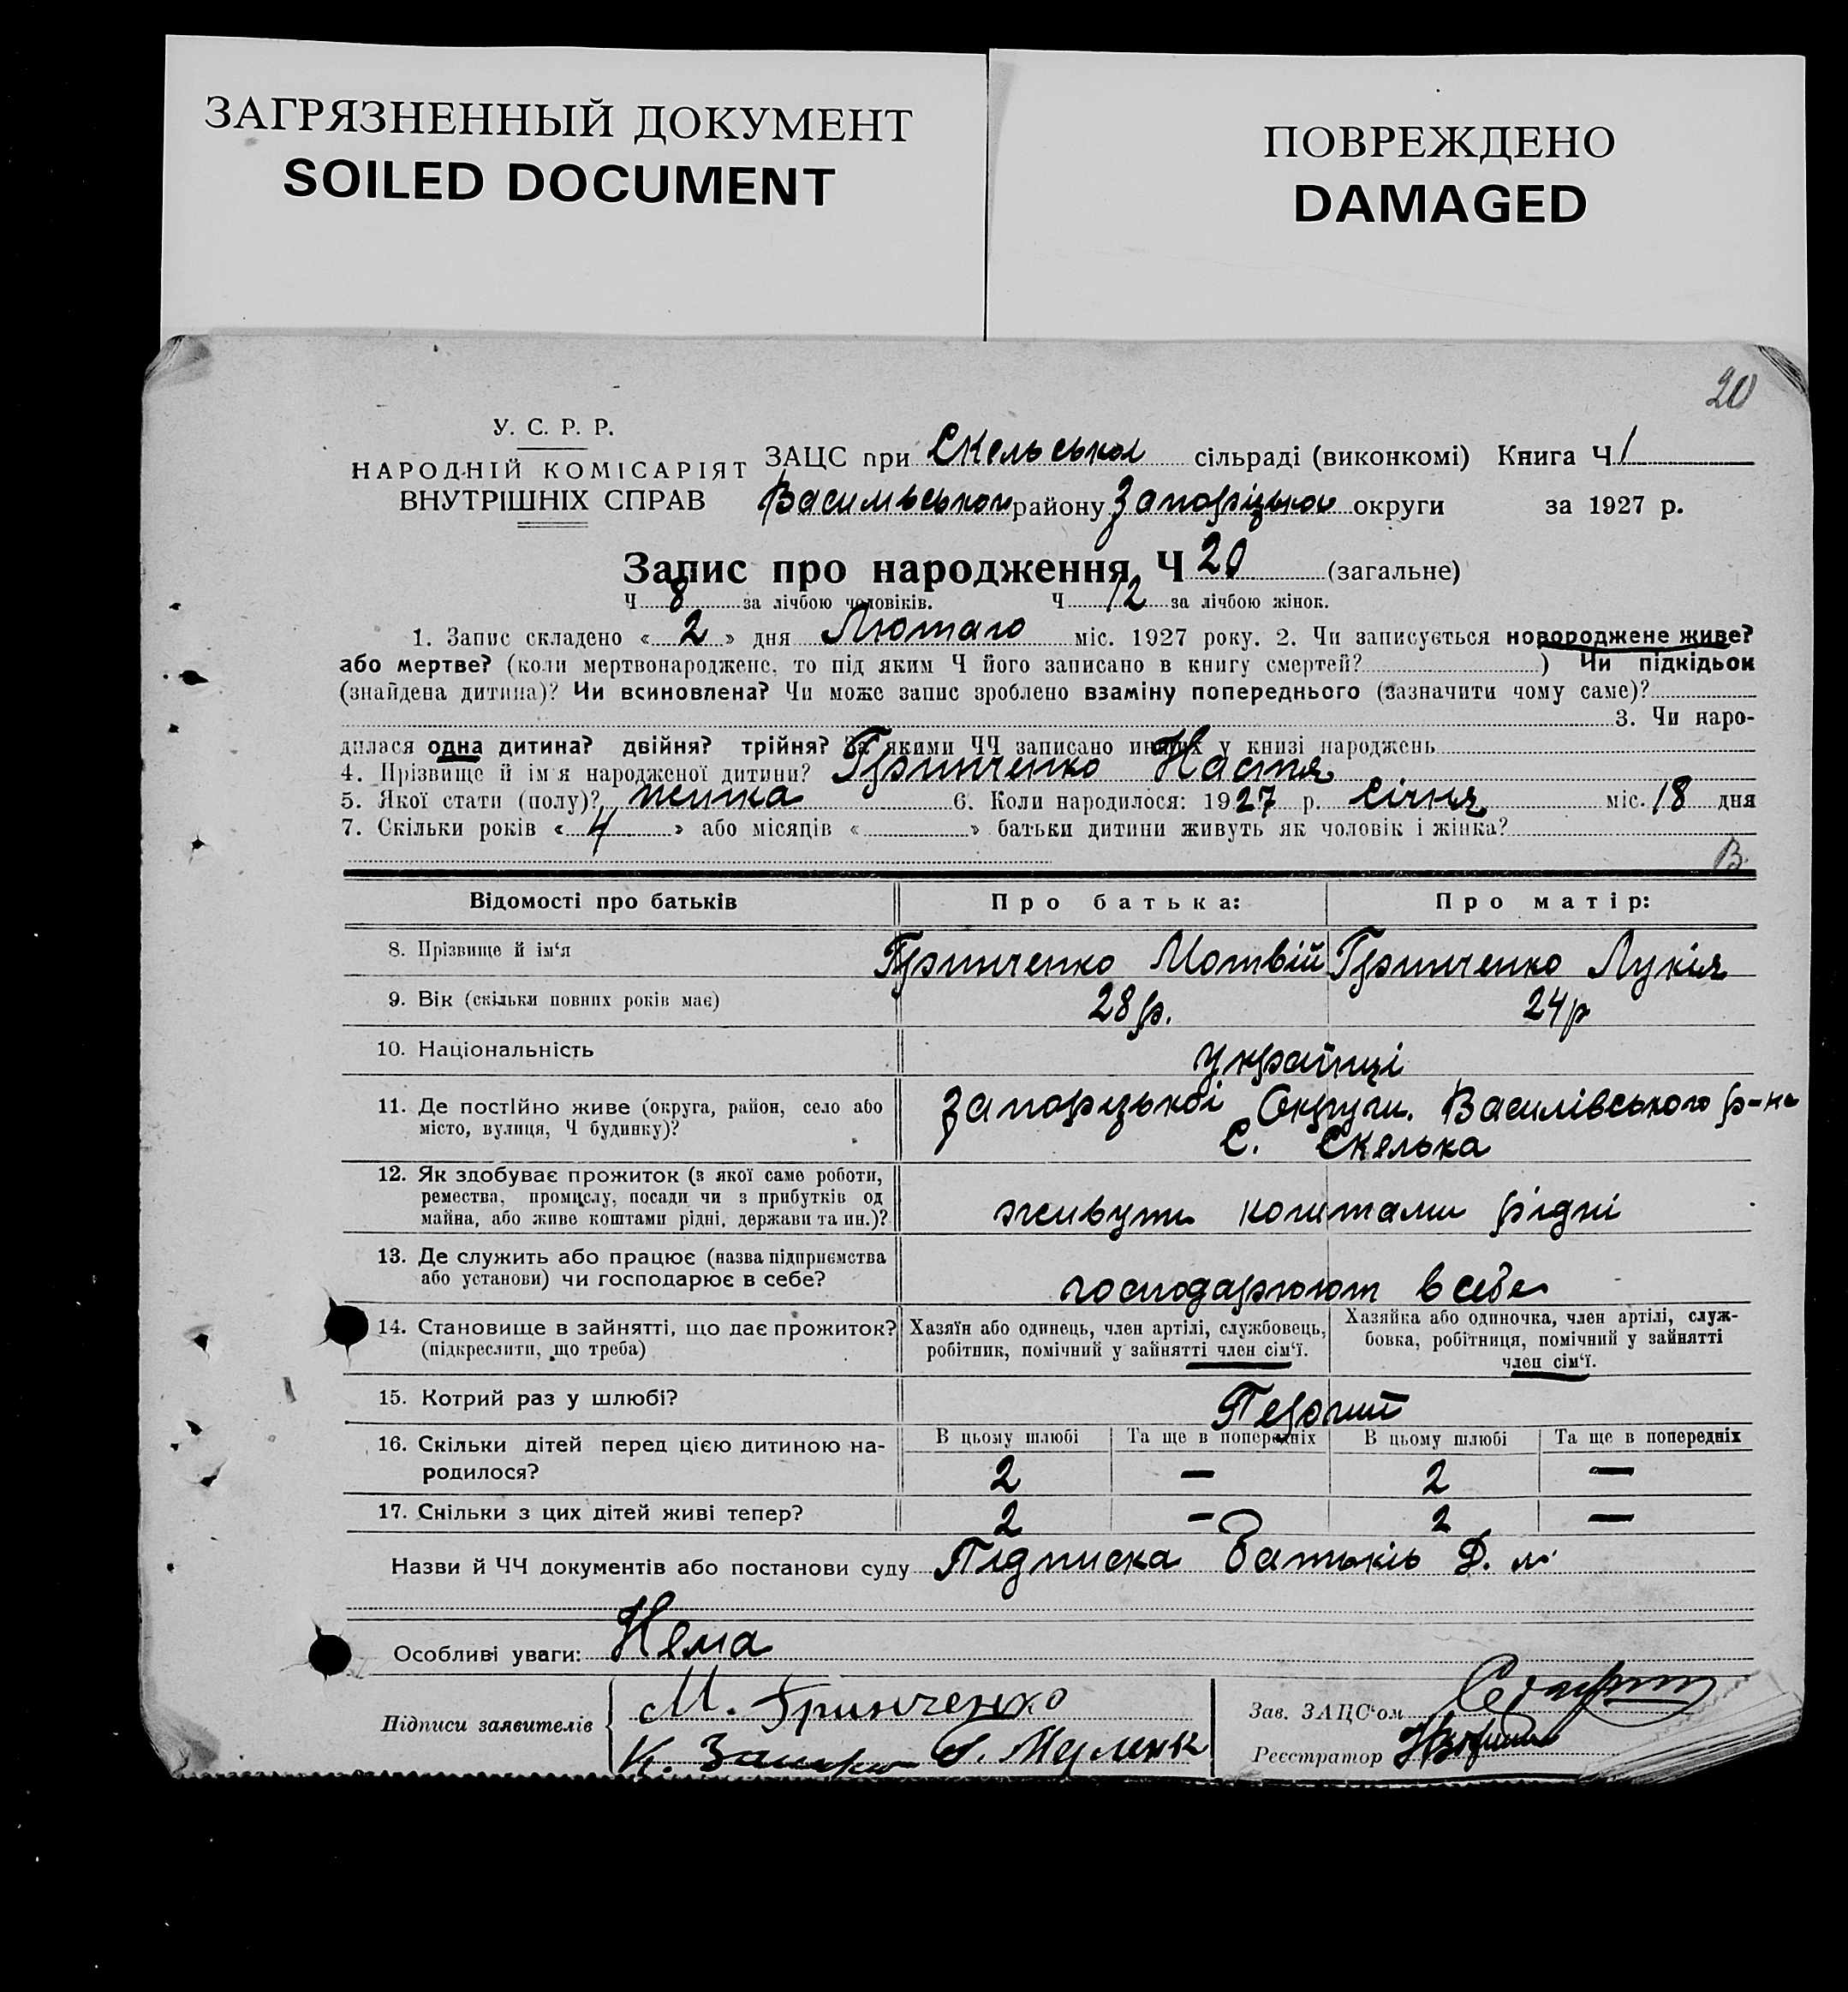 ЗАГРЯЗНЕННЫЙ ДОКУМЕНТ
SOILED DOCUMENT
ПОВРЕЖДЕНО
DAMAGED
20
У. С. Р. Р.
НАРОДНІЙ КОМІСАРІЯТ
ВНУТРІШНІХ СПРАВ
ЗАЦС при Скельської сільраді (виконкомі) Книга Ч 1
Васильського району Запорізької округи за 1927 р.
Запис про народження Ч 20 (загальне)
Ч 8 за лічбою чоловіків. Ч 12 за лічбою жінок.
1. Запис складено « 2 » дня Лютаго міс. 1927 року. 2. Чи записується новороджене живе?
або мертве? (коли мертвонароджене, то під яким Ч його записано в книгу смертей? ) Чи підкідьок
(знайдена дитина)? Чи всиновлена? Чи може запис зроблено взаміну попереднього (зазначити чому саме)?
3. Чи наро-
дилася одна дитина? двійня? трійня? За якими ЧЧ записано инших у книзі народжень
4. Прізвище й ім'я народженої дитини? Гринченко Настя
5. Якої стати (полу)? жинка 6. Коли народилося: 1927 р. січня міс. 18 дня
7. Скільки років « 4 » або місяців « » батьки дитини живуть як чоловік і жінка?
В.
Відомості про батьків Про батька: Про матір:
8. Прізвище й ім'я Гринченко Мотвій Гринченко Лукія
9. Вік (скільки повних років має) 28 р. 24 р
10. Національність українці
11. Де постійно живе (округа, район, село або місто, вулиця, Ч будинку)? Запорізької Округи. Василівського р-на
С. Скелька
12. Як здобуває прожиток (з якої саме роботи,
ремества, промислу, посади чи з прибутків од
майна, або живе коштами рідні, держави та ин.)? живути коштами рідні
13. Де служить або працює (назва підприємства
або установи) чи господарює в себе? господарюют в себе
14. Становище в зайнятті, що дає прожиток?
(підкреслити, що треба)
Хазяїн або одинець, член артілі, службовець,
робітник, помічний у зайнятті член сім'ї.
Хазяйка або одиночка, член артілі, служ-
бовка, робітниця, помічний у зайнятті
член сім'ї.
15. Котрий раз у шлюбі? Перший
16. Скільки дітей перед цією дитиною на-
родилося?
В цьому шлюбі Та ще в попередніх В цьому шлюбі Та ще в попередніх
2 — 2 —
17. Скільки з цих дітей живі тепер? 2 — 2 —
Назви й ЧЧ документів або постанови суду Підписка Батьків
Особливі уваги: Нема
Підписи заявителів М. Гринченко
К.
Зав. ЗАЦС'ом
Реєстратор